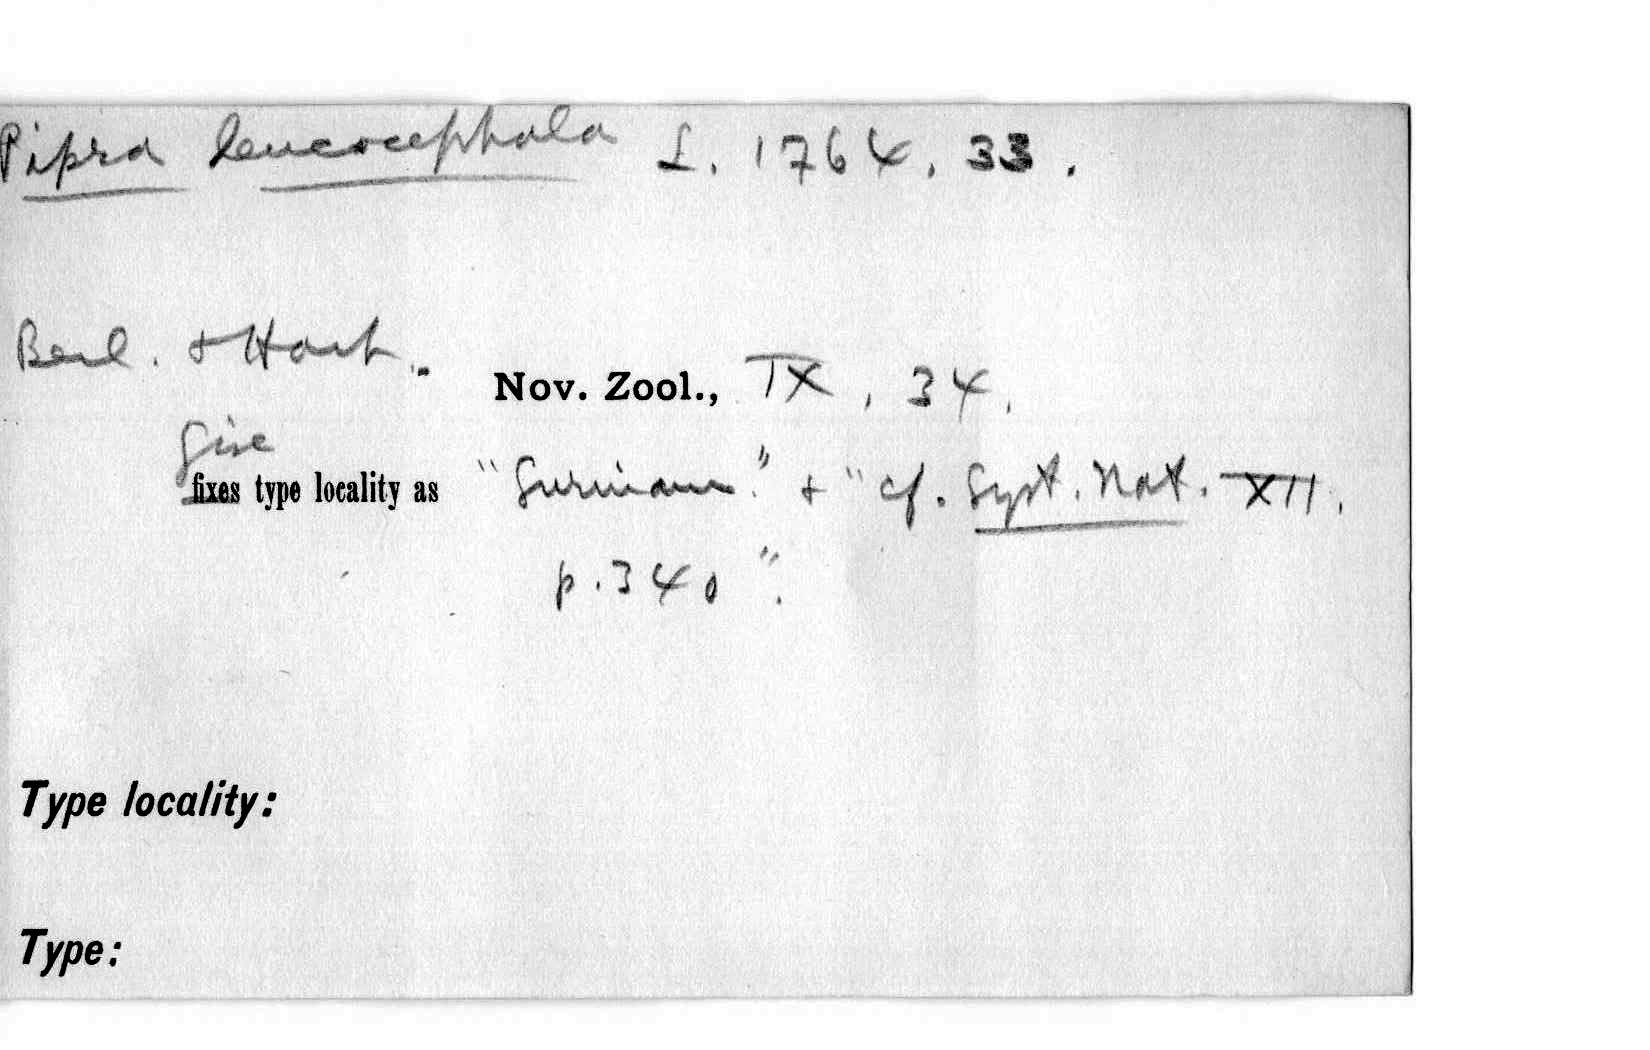 Pipra leucocephala L. 1764, 33.
Berl. + Hart.
Nov. Zool., IX, 34,
give
fixes type locality as "Surinam." + "cf. Syst. Nat. XII.
p. 340".
Type locality:
Type: